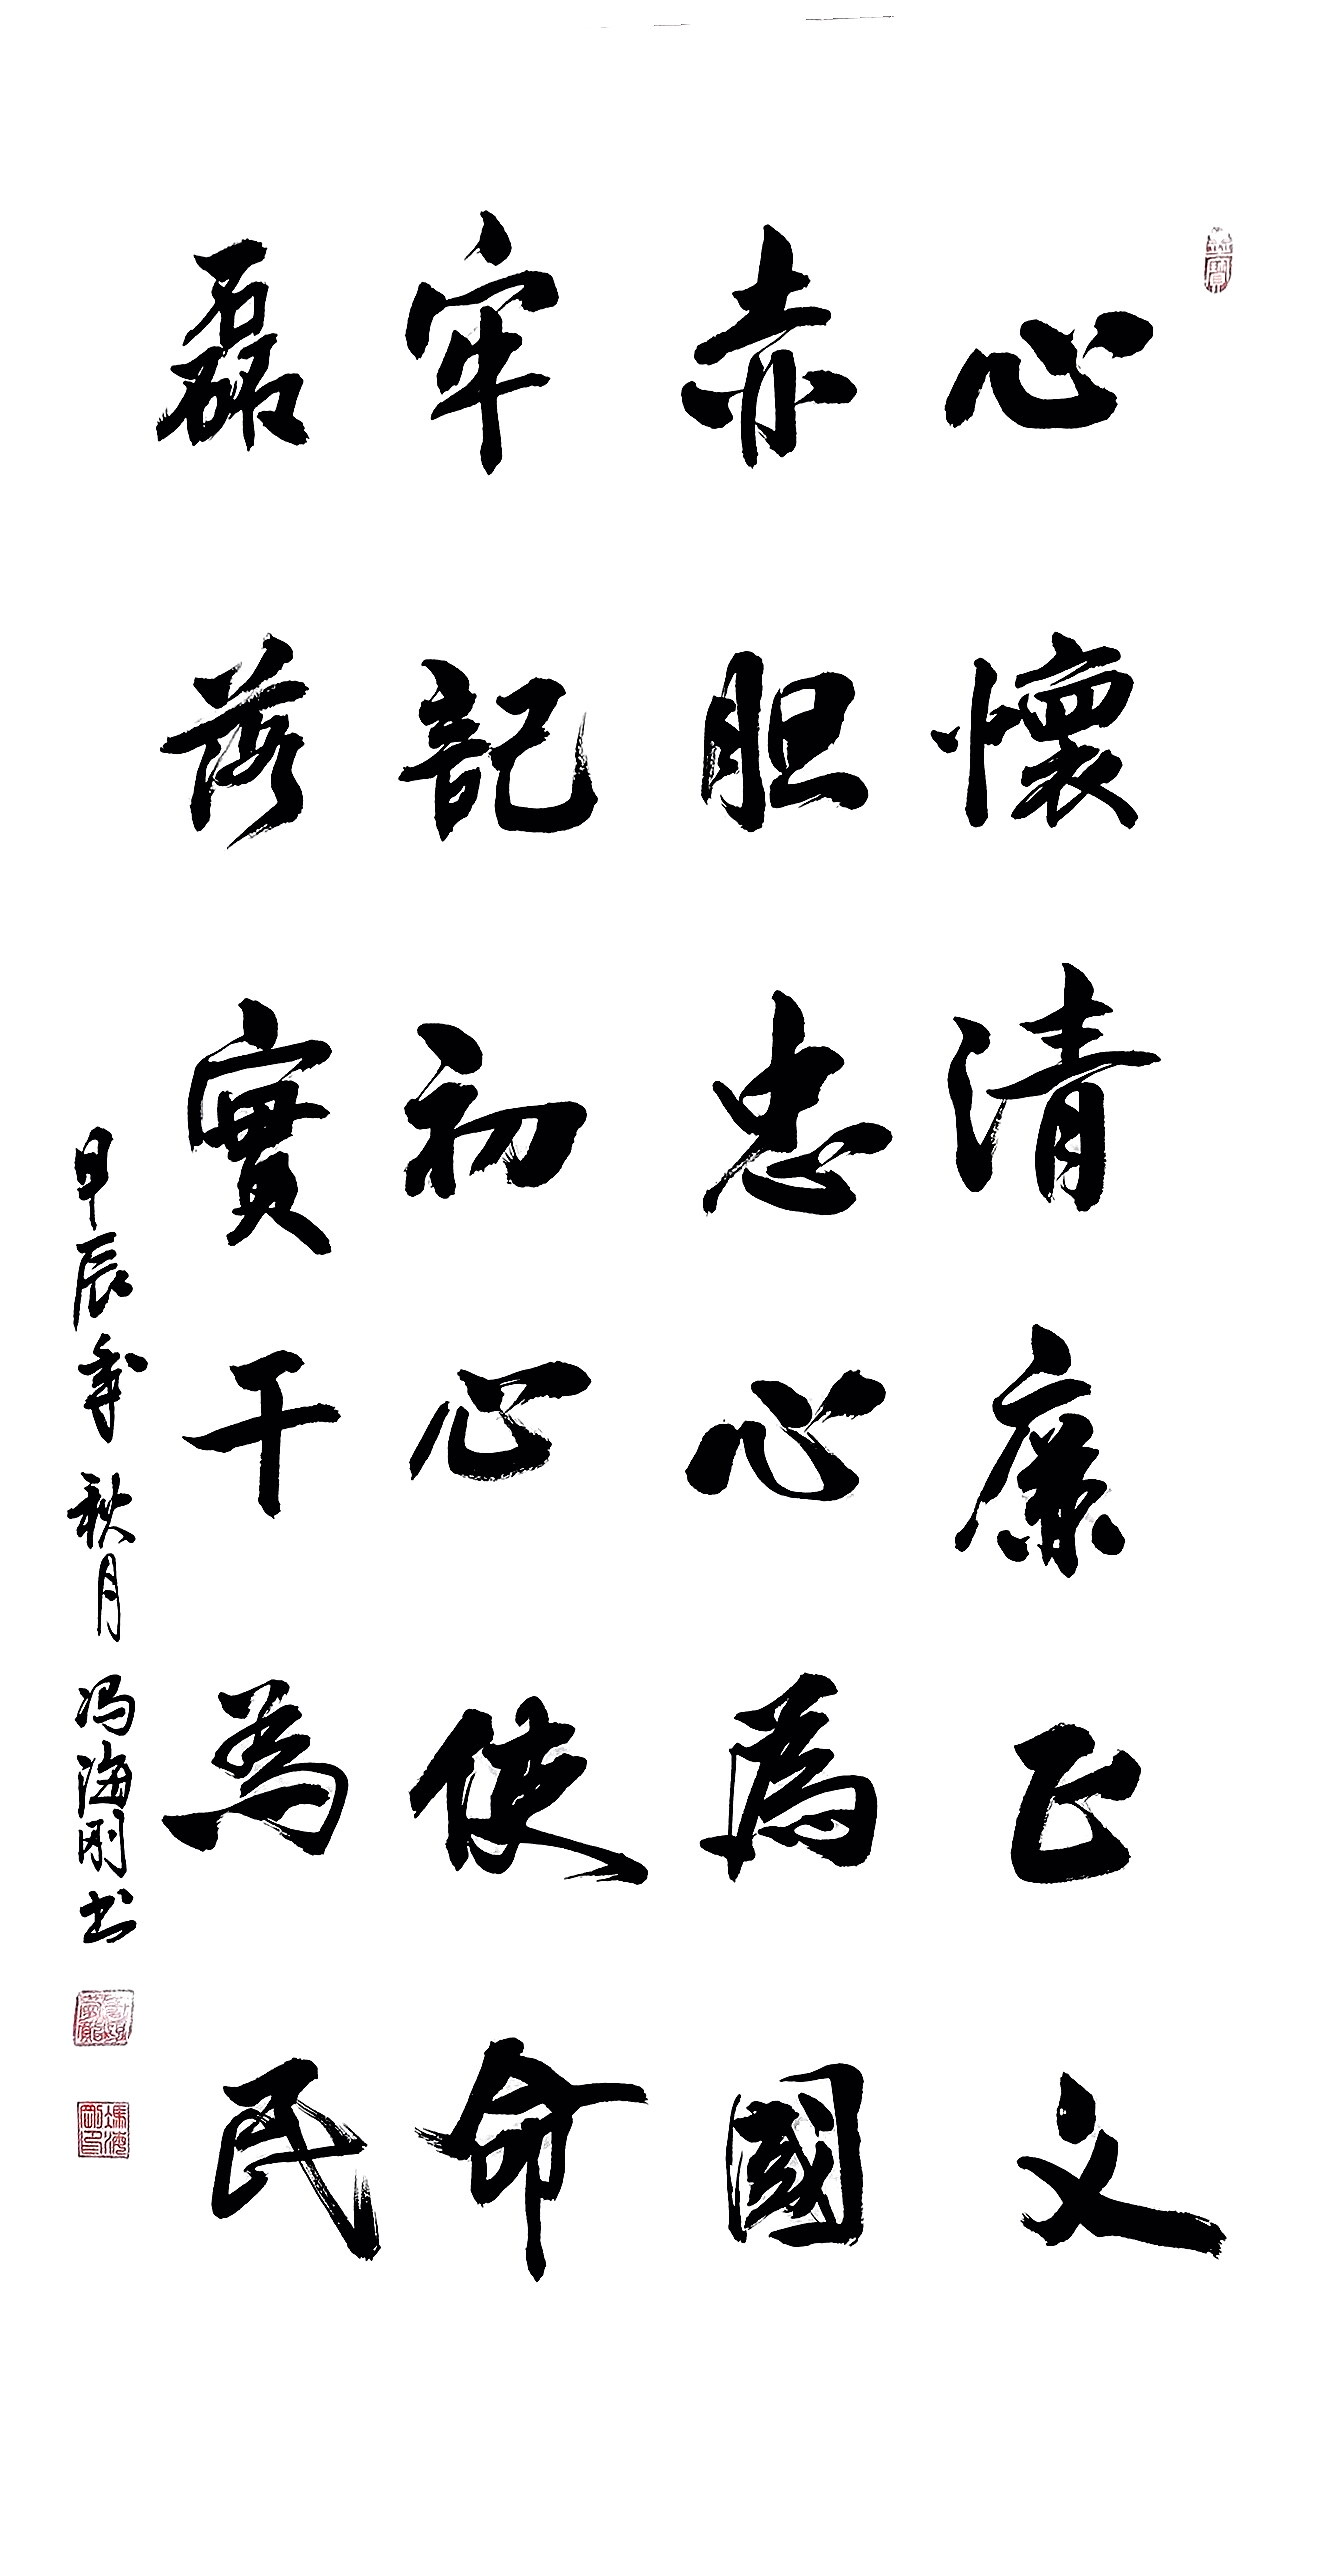 心懷清廉正文
赤胆忠心為國
牢記初心使命
磊落實干為民
甲辰年秋月冯海刚书